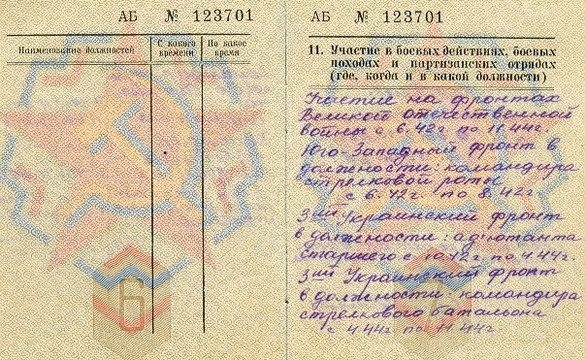 АБ № 123701
Наименование должностей
С какого времени
По какое время
6
АБ № 123701
11. Участие в боевых действиях, боевых
походах и партизанских отрядах
(где, когда и в какой должности)
Участие на фронтах
Великой отечественной
войны с 6.42г. по 11.44г.
Юго-Западный фронт в
должности: командира
стрелковой роты
с 6.42г. по 8.42г.
3ий Украинский фронт
в должности: адъютанта
старшего с 10.42г. по 4.44г.
3ий Украинский фронт
в должности: командира
стрелкового батальона
с 4.44г. по 11.44г.